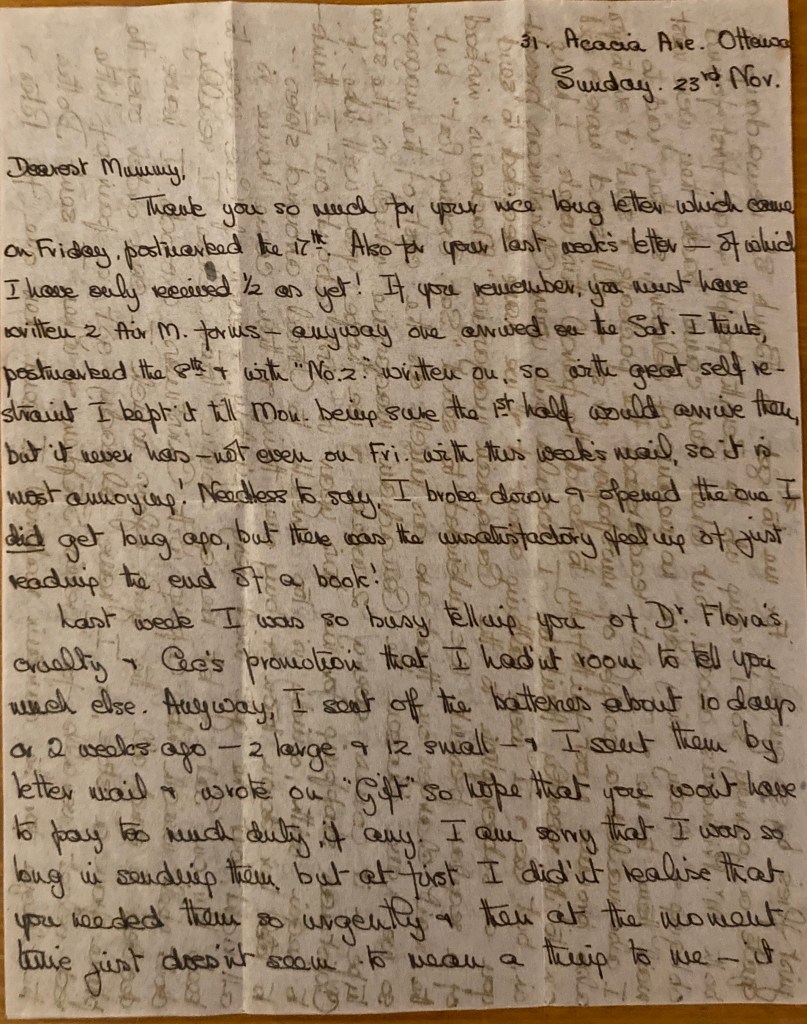 31. Acacia Ave. Ottawa
Sunday. 23rd Nov.
Dearest Mummy,
Thank you so much for your nice long letter which came
on Friday, postmarked the 17th. Also for your last week's letter — of which
I have only received 1/2 as yet! If you remember, you must have
written 2 Air M. forms — anyway one arrived on the Sat. I think,
postmarked the 8th & with "No. 2." written on, so with great self re-
straint I kept it till Mon. being sure the 1st half would arrive then,
but it never has — not even on Fri. with this week's mail, so it is
most annoying! Needless to say, I broke down & opened the one I
did get long ago, but there was the unsatisfactory feeling of just
reading the end of a book!
Last week I was so busy telling you of Dr. Flora's
cruelty & Cec's promotion that I had'nt room to tell you
much else. Anyway, I sent off the batteries about 10 days
or 2 weeks ago — 2 large & 12 small — & I sent them by
letter mail & wrote on "Gift" so hope that you won't have
to pay too much duty, if any. I am sorry that I was so
long in sending them, but at first I did'nt realise that
you needed them so urgently & then at the moment
time just does'nt seem to mean a thing to me — it